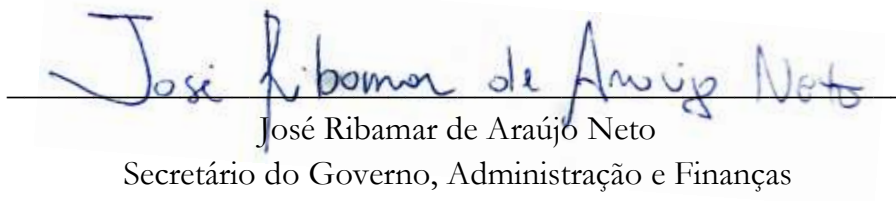 José Ribamar de Araújo Neto
José Ribamar de Araújo Neto
Secretário do Governo, Administração e Finanças